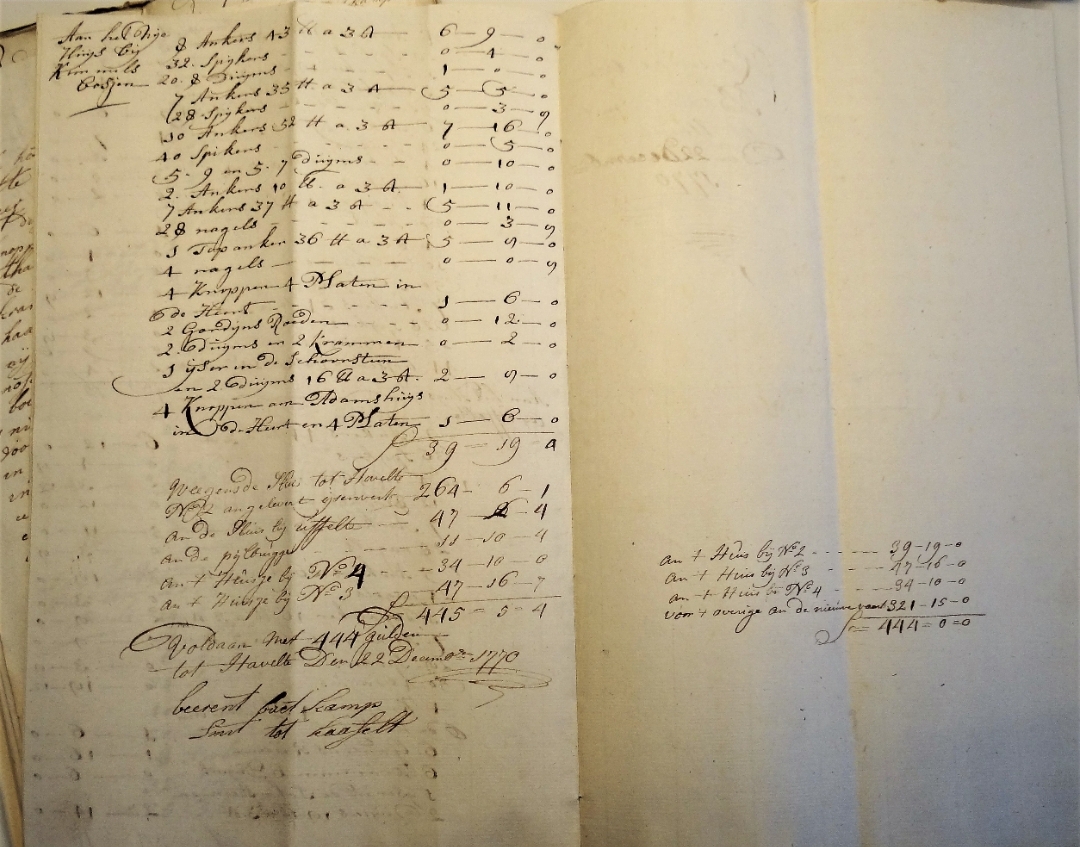 Aan het Hijs
Huijs bij
Kimmels
bosjen
8 Ankers 43 ℔ a 3 st 6 — 9 — 0
32 Spijkers - - - 0 — 4 — 0
20. 8 Duijms - - 1 — 0 — 0
7 Ankers 35 ℔ a 3 st — 5 — 5 — 0
28 Spijkers - - - 0 — 3 — 9
10 Ankers 52 ℔ a 3 st 7 — 16 — 0
40 Spikers - - - 0 — 5 — 0
5 - 9 en 5 - 7 duijms - - 0 — 10 — 0
2. Ankers 10 ℔. a 3 st. 1 — 10 — 0
7 Ankers 37 ℔ a 3 st - - 5 — 11 — 0
28 nagels - - - 0 — 3 — 9
1 Top anker 36 ℔ a 3 st 5 — 9 — 0
4 nagels - - - 0 — 0 — 9
4 Knoppen 4 Platen in
de Heert - - - 1 — 6 — 0
2 Gordijns Roeden 0 — 12 — 0
2. duijms en 2 Krammen 0 — 2 — 0
1 ijser in de Schoorsteen
en 2 duijms 16 ℔ a 3 st. 2 — 9 — 0
4 Knoppen aen Adamshuijs
in de Heert en 4 Platen 1 — 6 — 0
39 — 19 — 0
Weegens de Sluis tot Havelte
No 2 an gelevert eserwerk 264 - 6 - 1
an de Sluis bij uffelte — 47 - - 4
an de pijlbrugge - - - 11 - 10 - 4
an t Huisje bij No 4 - - 34 - 10 - 0
an t Huisje bij No 3 47 - 16 - 7
445 - 5 - 4
Voldaan met 444 gulden
tot Havelte Den 22 Decembr 1770
beerent
Smit tot haaselt
an t Huis bij No 2 - - - - - 39 - 19 - 0
an t Huis bij No 3 - - - - 47 - 16 - 0
an t Huis bi No 4 - - - - 34 - 10 - 0
voor t overige an de nieuwe vaart 321 - 15 - 0
444 = 0 = 0
22 Decemb
1770